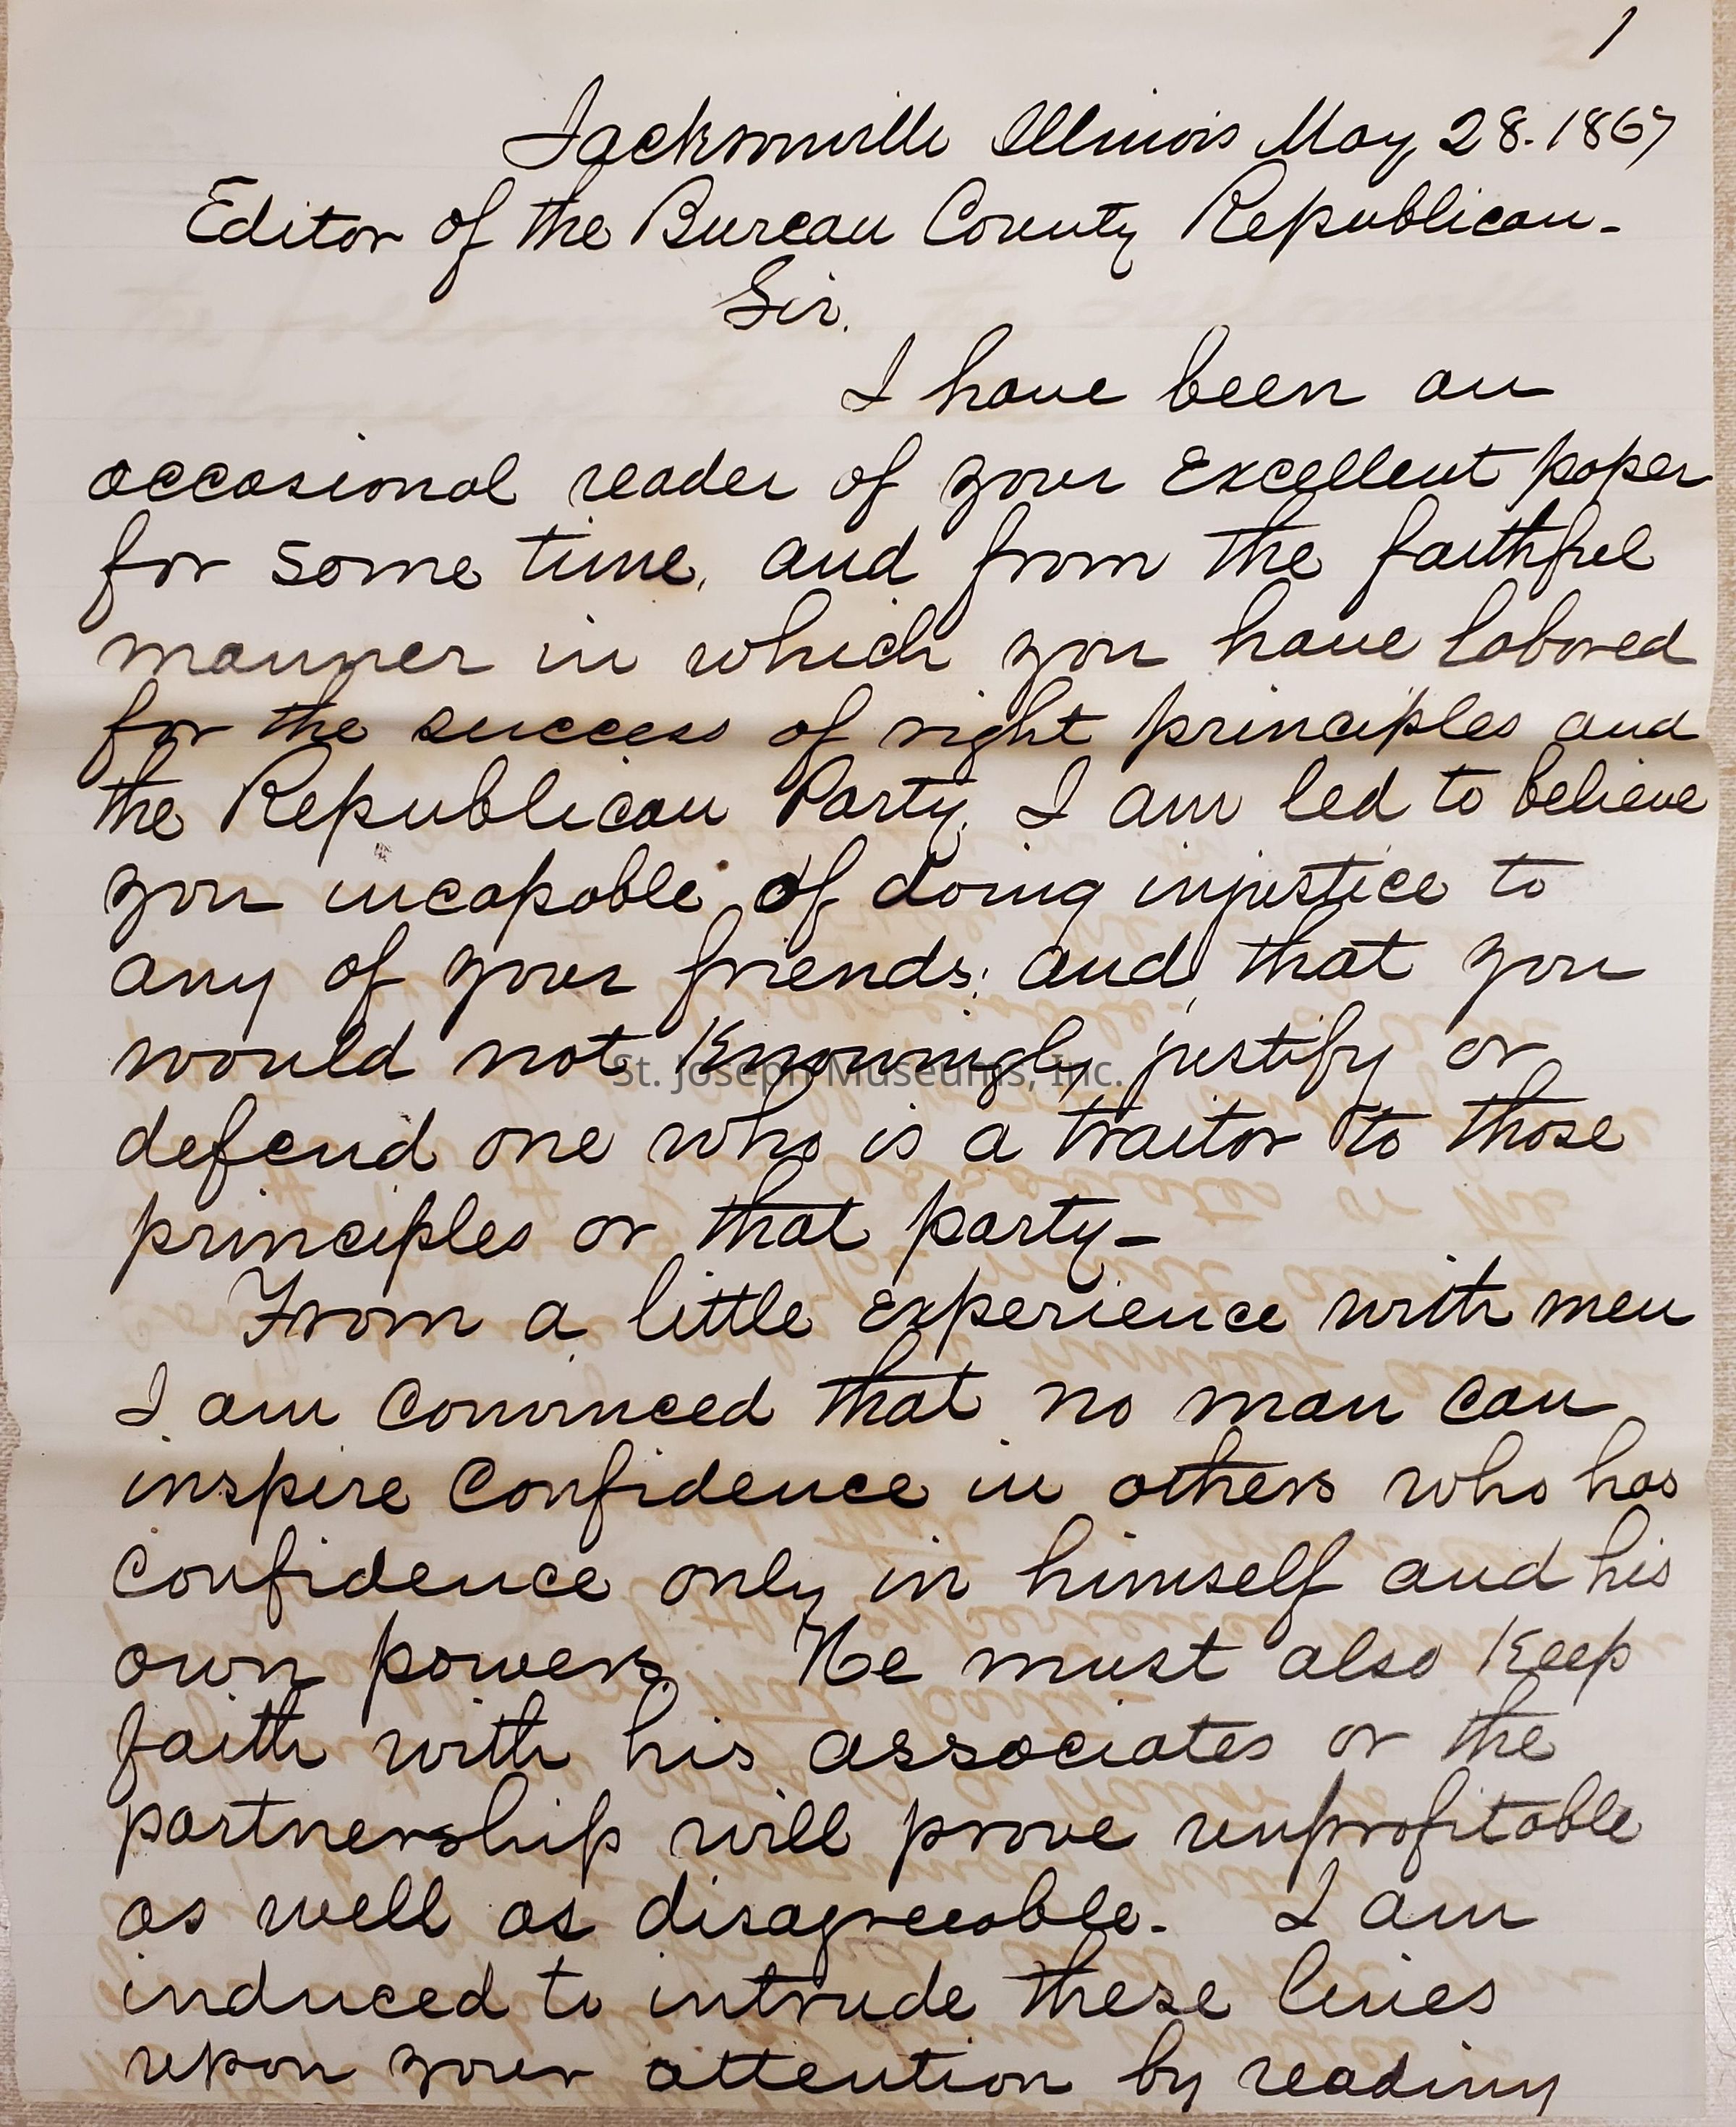 1
Jacksonville Illinois May, 28. 1867
Editor of the Bureau County Republican-
Sir.
I have been an
occasional reader of your Excellent paper
for some time, and from the faithful
manner in which you have labored
for the success of right principles and
the Republican Party, I am led to believe
you incapable of doing injustice to
any of your friends; and, that you
would not Knowingly justify or
St. Joseph Museums, Inc.
defend one who is a traitor to those
principles or that party-
From a little experience with men
I am convinced that no man can
inspire confidence in others who has
confidence only in himself and his
own powers. He must also Keep
faith with his associates or the
partnership will prove unprofitable
as well as disagreeable- I am
induced to intrude these lines
upon your attention by reading